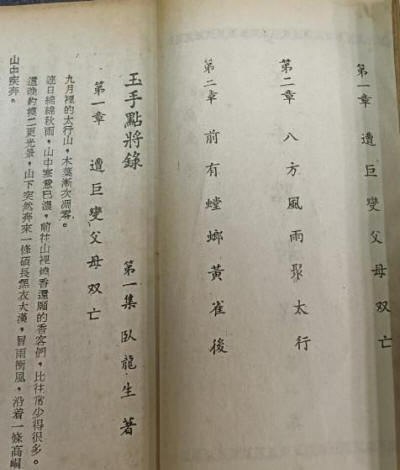 第一章 遭巨變父母双亡
第二章 八方風雨聚太行
第二章 前有螳螂黃雀後
玉手點將錄 第一集 臥龍生 著
第一章 遭巨變父母双亡
九月裡的太行山,木葉漸次凋零。
連日綿綿秋雨,山中寒意已濃,前往山裡燒香還願的香客們,比往常少得很多。
這晚約摸二更光景,山下突然奔來一條碩長黑衣大漢,冒雨衝風,沿着一條高峒
山中疾奔。